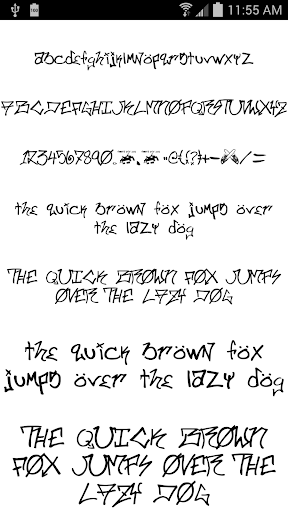 11:55 AM
abcdefghijklmnopqrstuvwxyz
ABCDEFGHIJKLMNOPQRSTUVWXYZ
1234567890
the quick brown fox jumps over
the lazy dog
THE QUICK BROWN FOX JUMPS
OVER THE LAZY DOG
the quick brown fox
jumps over the lazy dog
THE QUICK BROWN
FOX JUMPS OVER THE
LAZY DOG